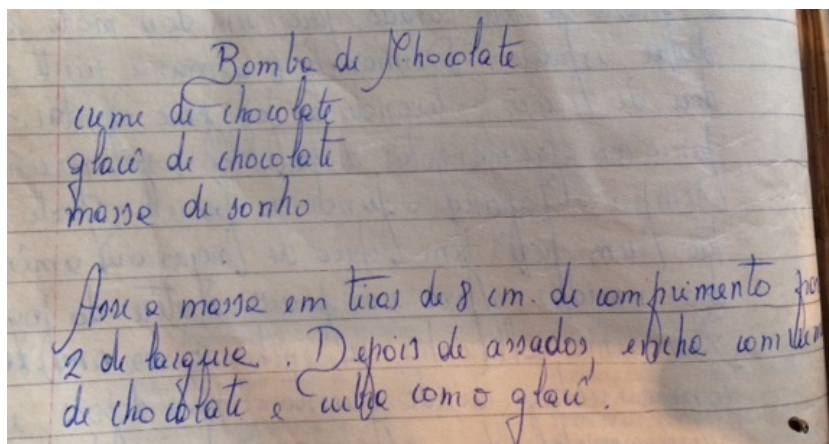 Bomba de Chocolate
creme de chocolate
glacê de chocolate
massa de sonho
Asse a massa em tiras de 8 cm. de comprimento por
2 de largura. Depois de assados, encha com creme
de chocolate e cubra com o glacê.